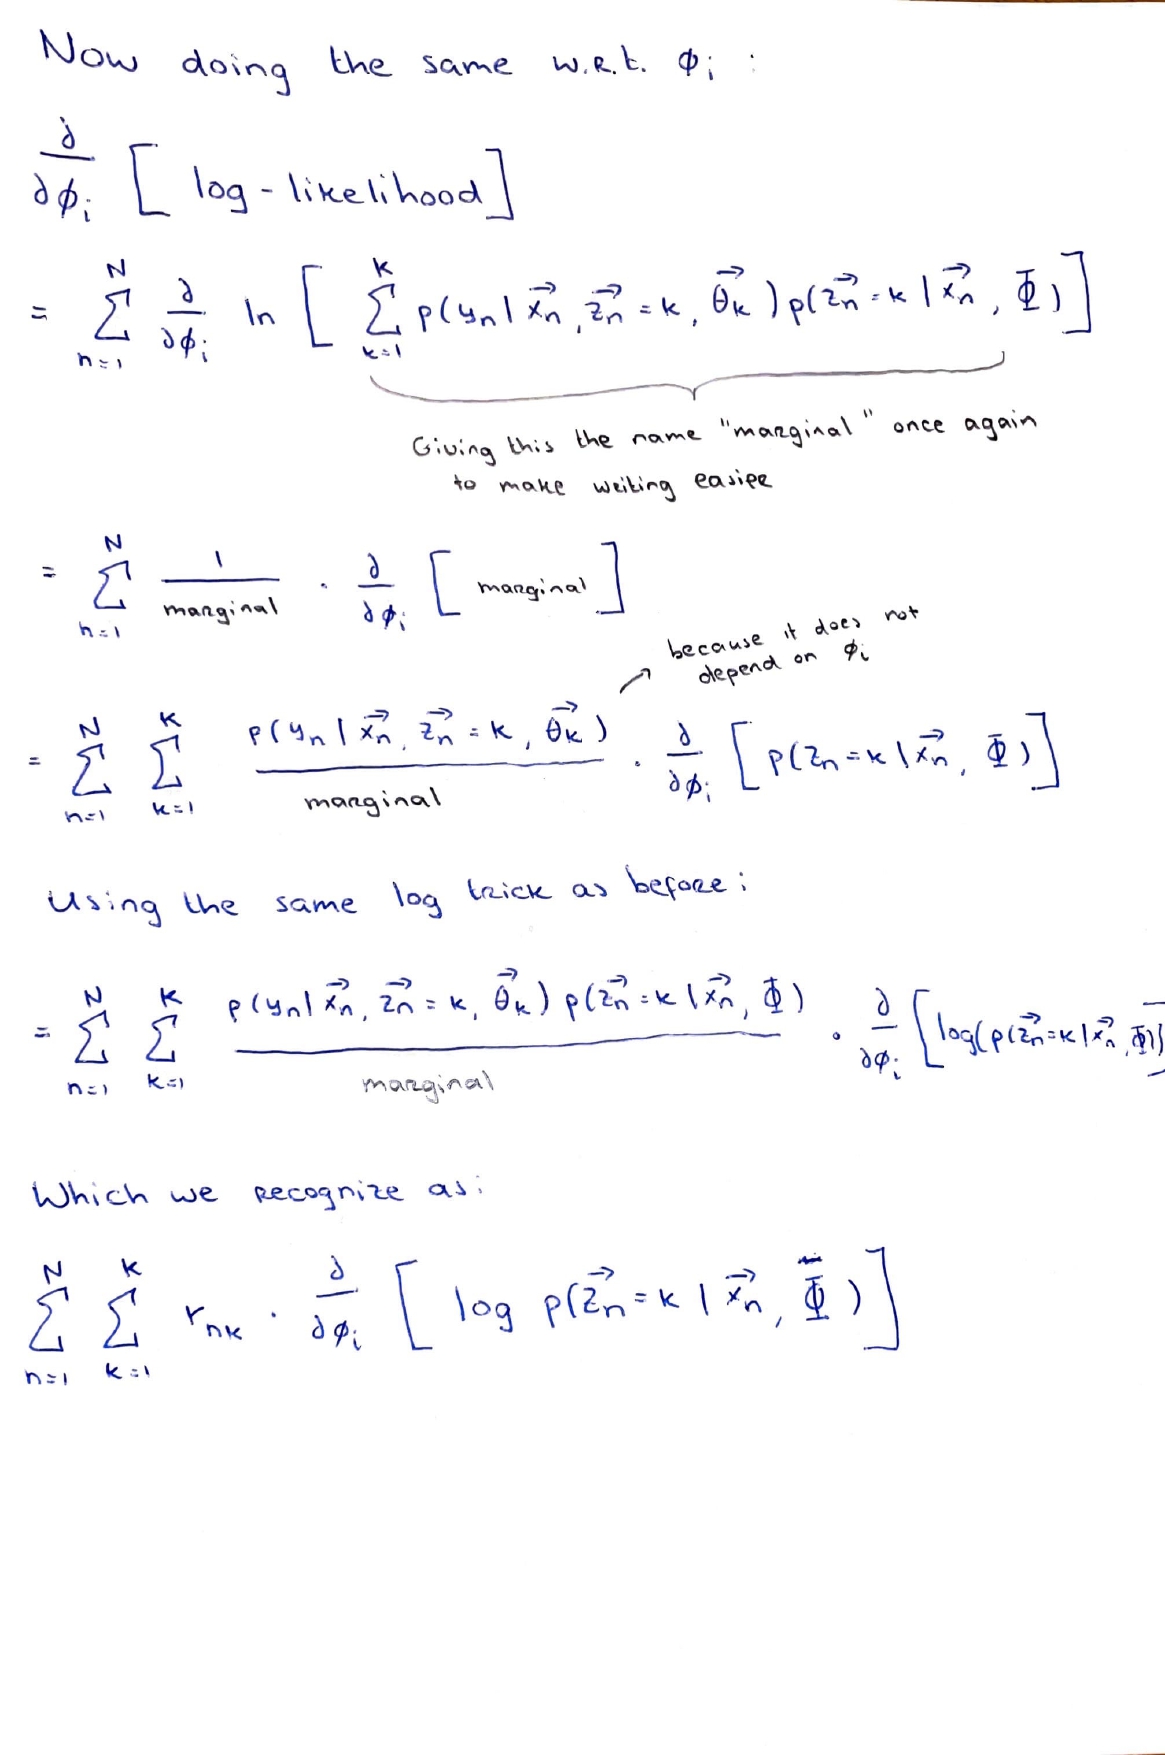 Now doing the same w.r.t. ϕᵢ :
∂/∂ϕᵢ [ log-likelihood ]
= ∑_{n=1}^{N} ∂/∂ϕᵢ ln [ ∑_{k=1}^{K} p(yₙ | x⃗ₙ, z⃗ₙ = k, θ⃗ₖ) p(z⃗ₙ = k | x⃗ₙ, Φ) ]
Giving this the name "marginal" once again
to make writing easier
= ∑_{n=1}^{N} 1/marginal · ∂/∂ϕᵢ [ marginal ]
because it does not
depend on ϕᵢ
= ∑_{n=1}^{N} ∑_{k=1}^{K} p(yₙ | x⃗ₙ, z⃗ₙ = k, θ⃗ₖ)/marginal · ∂/∂ϕᵢ [ p(zₙ = k | x⃗ₙ, Φ) ]
Using the same log trick as before :
= ∑_{n=1}^{N} ∑_{k=1}^{K} p(yₙ | x⃗ₙ, z⃗ₙ = k, θ⃗ₖ) p(z⃗ₙ = k | x⃗ₙ, Φ)/marginal · ∂/∂ϕᵢ [ log(p(z⃗ₙ = k | x⃗ₙ, Φ)) ]
Which we recognize as:
∑_{n=1}^{N} ∑_{k=1}^{K} rₙₖ · ∂/∂ϕᵢ [ log p(z⃗ₙ = k | x⃗ₙ, Φ) ]